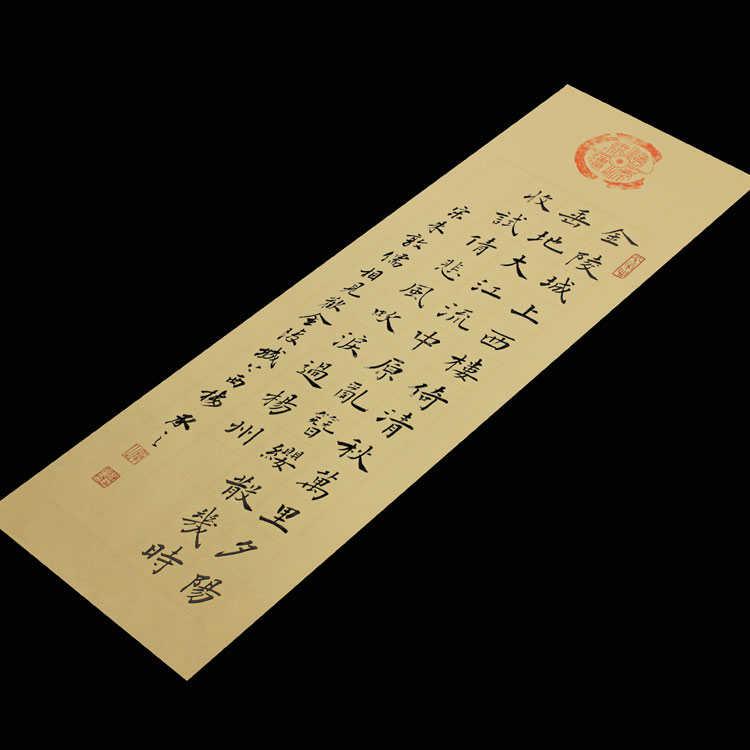 金陵城上西樓倚清秋萬里夕陽
垂地大江流中原亂簪纓散幾時
收試倩悲風吹淚過楊州
宋朱敦儒相見歡金陵城上西樓